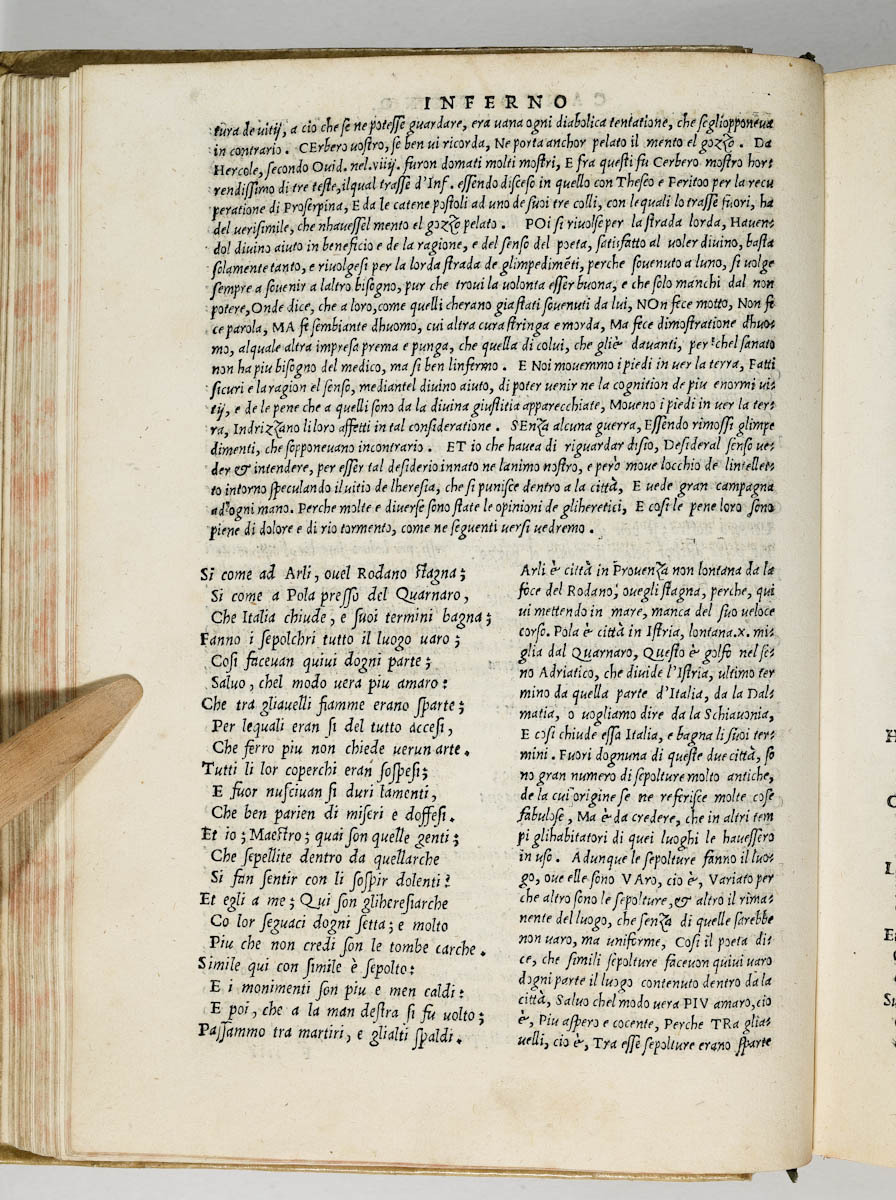 INFERNO
tura de uitij, a cio che se ne potesse guardare, era uana ogni diabolica tentatione, che segliopponeua
in contrario. CErbero uostro, se ben ui ricorda, Ne porta anchor pelato il mento el gozzo. Da
Hercole, secondo Ouid. nel.viiij. furon domati molti mostri, E fra questi fu Cerbero mostro hor=
rendissimo di tre teste, ilqual trasse d'Inf. essendo disceso in quello con Theseo e Peritoo per la recu
peratione di Proserpina, E da le catene postoli ad uno de suoi tre colli, con lequali lo trasse fuori, ha
del uerisimile, che nhauessel mento el gozzo pelato. POi si riuolse per la strada lorda, Hauen=
dol diuino aiuto in beneficio e de la ragione, e del senso del poeta, satisfatto al uoler diuino, basta
solamente tanto, e riuolgesi per la lorda strada de glimpedimēti, perche souenuto a luno, si uolge
sempre a souenir a laltro bisogno, pur che troui la uolonta esser buona, e che solo manchi dal non
potere, Onde dice, che a loro, come quelli cherano gia stati souenuti da lui, NOn fece motto, Non fe
ce parola, MA fe sembiante dhuomo, cui altra cura stringa e morda, Ma fece dimostratione dhuo=
mo, alquale altra impresa prema e punga, che quella di colui, che gliè dauanti, per chel sanato
non ha piu bisogno del medico, ma si ben linfermo. E Noi mouemmo i piedi in uer la terra, Fatti
sicuri e la ragion el senso, mediantel diuino aiuto, di poter uenir ne la cognition de piu enormi ui=
tij, e de le pene che a quelli sono da la diuina giustitia apparecchiate, Moueno i piedi in uer la ter=
ra, Indrizzano li loro affetti in tal consideratione. SEnza alcuna guerra, Essendo rimossi glimpe
dimenti, che sopponeuano incontrario. ET io che hauea di riguardar disio, Desideral senso ue=
der & intendere, per esser tal desiderio innato ne lanimo nostro, e pero moue locchio de lintellet=
to intorno speculando il uitio de lheresia, che si punisce dentro a la città, E uede gran campagna
ad ogni mano. Perche molte e diuerse sono state le opinioni de gliheretici, E cosi le pene loro sono
piene di dolore e di rio tormento, come ne seguenti uersi uedremo.
Si come ad Arli, ouel Rodano stagna;
Si come a Pola presso del Quarnaro,
Che Italia chiude, e suoi termini bagna;
Fanno i sepolchri tutto il luogo uaro;
Cosi faceuan quiui dogni parte;
Saluo, chel modo uera piu amaro:
Che tra gliauelli fiamme erano sparte;
Per lequali eran si del tutto accesi,
Che ferro piu non chiede uerun arte.
Tutti li lor coperchi eran sospesi;
E fuor nusciuan si duri lamenti,
Che ben parien di miseri e doffesi.
Et io; Maestro; quai son quelle genti;
Che sepellite dentro da quellarche
Si fan sentir con li sospir dolenti?
Et egli a me; Qui son gliheresiarche
Co lor seguaci dogni setta; e molto
Piu che non credi son le tombe carche.
Simile qui con simile è sepolto:
E i monimenti son piu e men caldi:
E poi, che a la man destra si fu uolto;
Passammo tra martiri, e glialti spaldi.
Arli è città in Prouenza non lontana da la
foce del Rodano, ouegli stagna, perche, qui
ui mettendo in mare, manca del suo ueloce
corso. Pola è città in Istria, lontana.x. mi=
glia dal Quarnaro, Questo è golfo nel se=
no Adriatico, che diuide l'Istria, ultimo ter
mino da quella parte d'Italia, da la Dal=
matia, o uogliamo dire da la Schiauonia,
E cosi chiude essa Italia, e bagna li suoi ter=
mini. Fuori dognuna di queste due città, so
no gran numero di sepolture molto antiche,
de la cui origine se ne referisce molte cose
fabulose, Ma è da credere, che in altri tem
pi glihabitatori di quei luoghi le hauessero
in uso. Adunque le sepolture fanno il luo=
go, oue elle sono VAro, cio è, Variato per
che altro sono le sepolture, & altro il rima=
nente del luogo, che senza di quelle sarebbe
non uaro, ma uniforme, Cosi il poeta di=
ce, che simili sepolture faceuon quiui uaro
dogni parte il luogo contenuto dentro da la
città, Saluo chel modo uera PIV amaro, cio
è, Piu aspero e cocente, Perche TRa glia=
uelli, cio è, Tra esse sepolture erano sparte